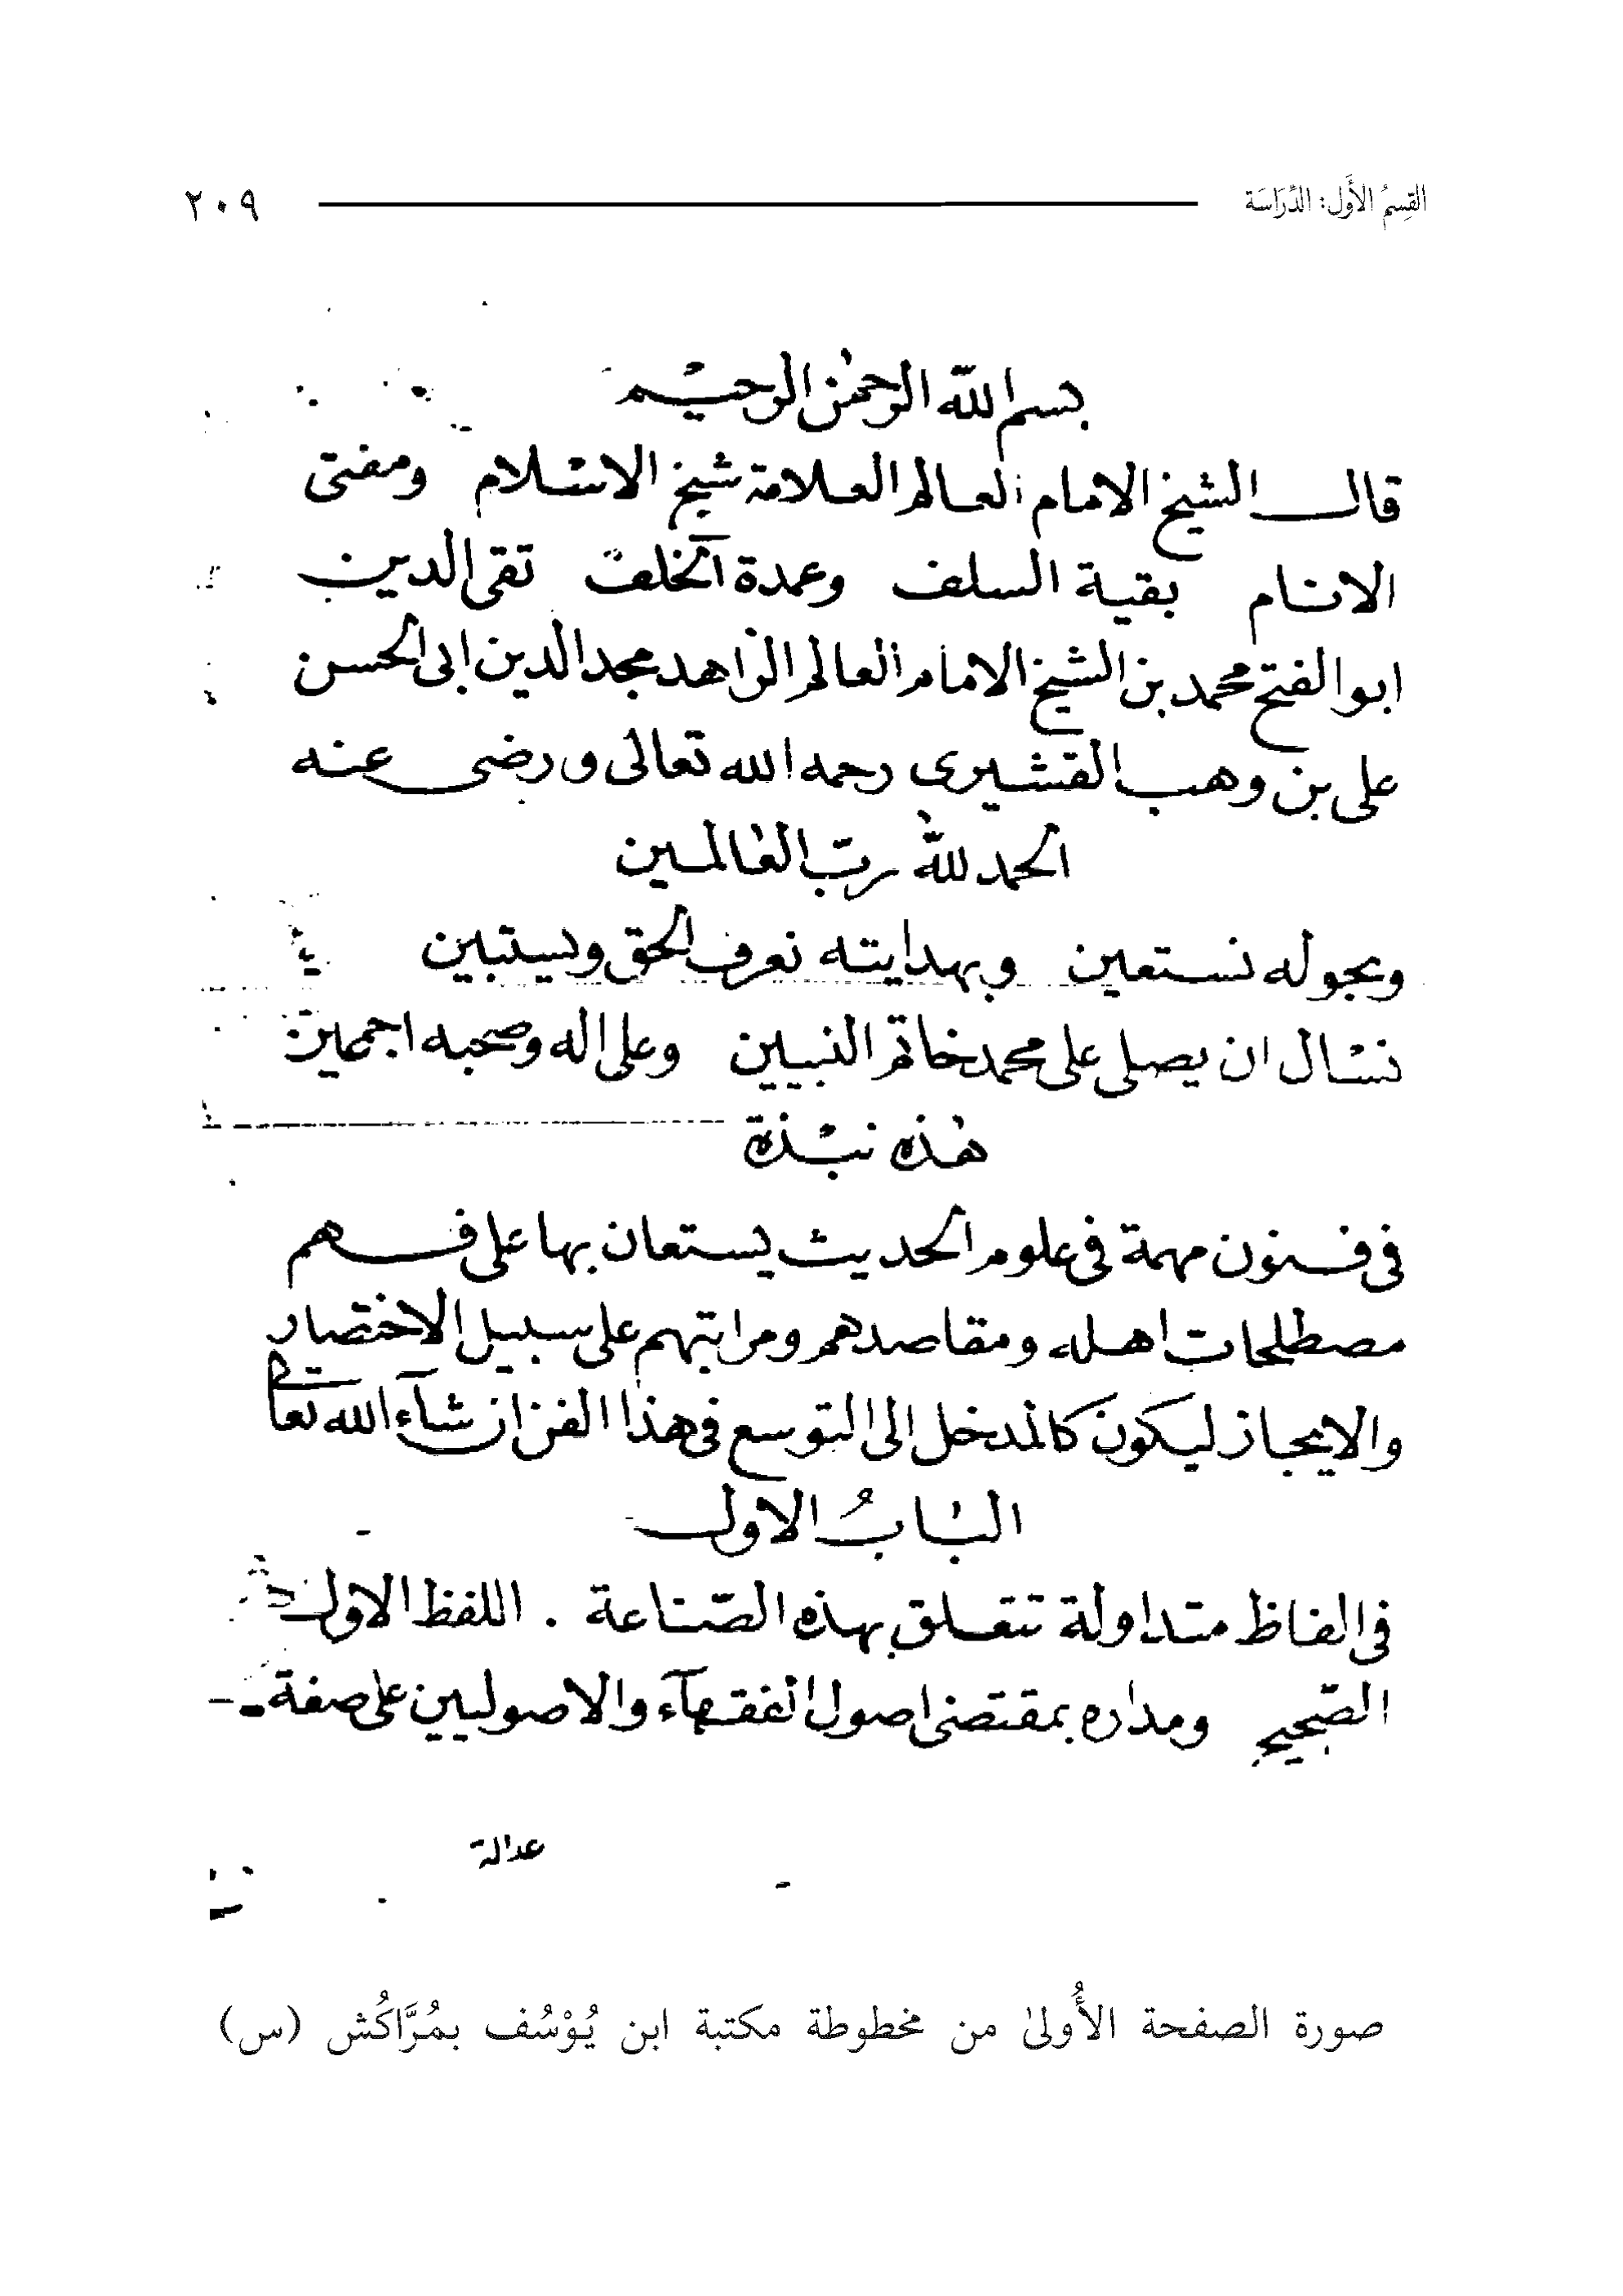 القِسمُ الأَوَّل: الدِّرَاسَة ٢٠٩
بسم الله الرحمن الرحيم
قال الشيخ الامام العالم العلامة شيخ الاسلام ومفتى
الانام بقية السلف وعمدة الخلف تقى الدين
ابو الفتح محمد بن الشيخ الامام العالم الزاهد مجد الدين ابى الحسن
على بن وهب القشيرى رحمه الله تعالى ورضى عنه
الحمد لله ربّ العالمين
وبحوله نستعين وبهدايته نعرف الحق ونستبين
نسال ان يصلى على محمد خاتم النبيين وعلى اله وصحبه اجمعين
هذه نبذة
فى فنون مهمة فى علوم الحديث يستعان بها على فهم
مصطلحات اهله ومقاصدهم ومراتبهم على سبيل الاختصار
والايجاز ليكون كالمدخل الى التوسع فى هذا الفن ان شآء الله تعالى
الباب الاول
فى الفاظ متداولة تتعلق بهذه الصّناعة . اللفظ الاول
الصّحيح ومداره بمقتضى اصول الفقهآء والاصوليين على صفة
عدالة
صورة الصفحة الأُولىٰ من مخطوطة مكتبة ابن يُوْسُف بمُرَّاكُش (س)